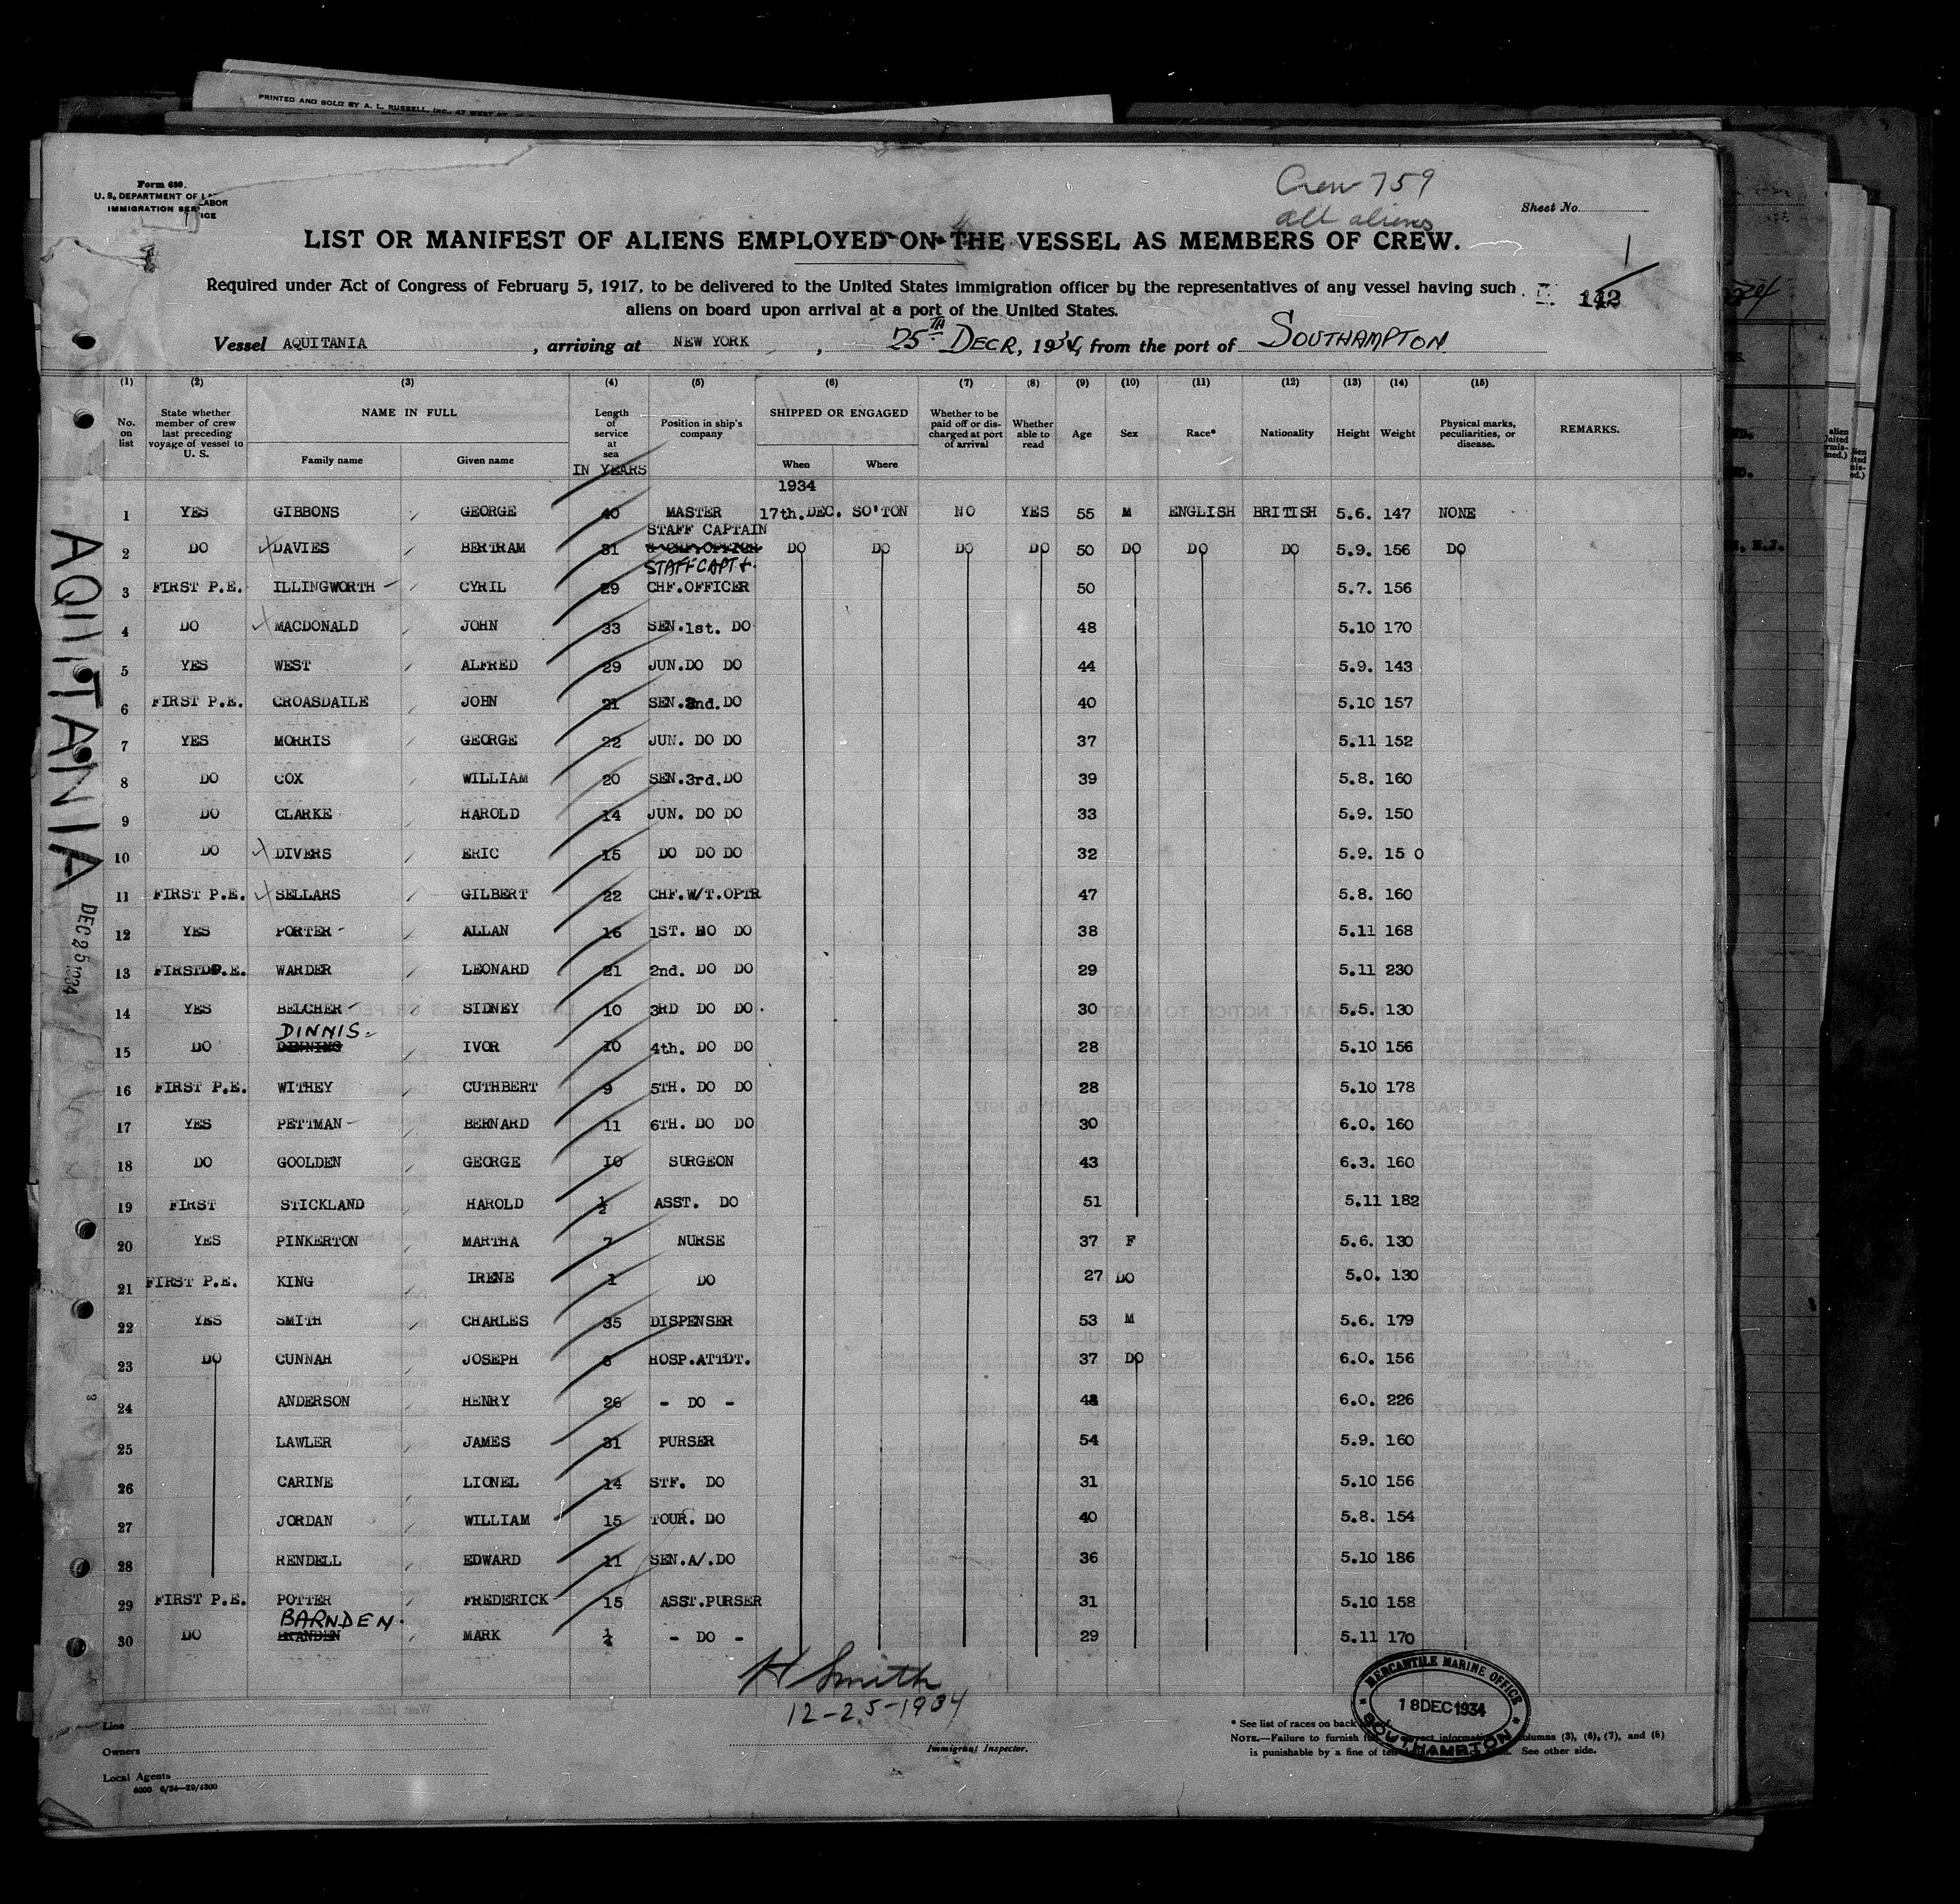 PRINTED AND SOLD BY A. L. RUSSELL, INC., 47 WEST ST.
Form 680.
U. S. DEPARTMENT OF LABOR
IMMIGRATION SERVICE
Crew 759
all aliens
Sheet No.
LIST OR MANIFEST OF ALIENS EMPLOYED ON THE VESSEL AS MEMBERS OF CREW.
1
Required under Act of Congress of February 5, 1917, to be delivered to the United States immigration officer by the representatives of any vessel having such
142
aliens on board upon arrival at a port of the United States.
Vessel AQUITANIA, arriving at NEW YORK, 25TH DECR, 1934, from the port of SOUTHAMPTON
(1) (2) (3) (4) (5) (6) (7) (8) (9) (10) (11) (12) (13) (14) (15)
No. on list | State whether member of crew last preceding voyage of vessel to U. S. | NAME IN FULL Family name Given name | Length of service at sea IN YEARS | Position in ship's company | SHIPPED OR ENGAGED When Where | Whether to be paid off or discharged at port of arrival | Whether able to read | Age | Sex | Race* | Nationality | Height | Weight | Physical marks, peculiarities, or disease. | REMARKS.
1934
1 YES GIBBONS GEORGE 40 MASTER 17th.DEC. SO'TON NO YES 55 M ENGLISH BRITISH 5.6. 147 NONE
STAFF CAPTAIN
2 DO DAVIES BERTRAM 31 DO DO DO DO 50 DO DO DO 5.9. 156 DO
STAFF CAPT
3 FIRST P.E. ILLINGWORTH CYRIL 29 CHF.OFFICER 50 5.7. 156
4 DO MACDONALD JOHN 33 SEN.1st. DO 48 5.10 170
5 YES WEST ALFRED 29 JUN.DO DO 44 5.9. 143
6 FIRST P.E. CROASDAILE JOHN 21 SEN.2nd.DO 40 5.10 157
7 YES MORRIS GEORGE 22 JUN. DO DO 37 5.11 152
8 DO COX WILLIAM 20 SEN.3rd.DO 39 5.8. 160
9 DO CLARKE HAROLD 14 JUN. DO DO 33 5.9. 150
10 DO DIVERS ERIC 15 DO DO DO 32 5.9. 15 0
11 FIRST P.E. SELLARS GILBERT 22 CHF.W/T.OPTR 47 5.8. 160
12 YES PORTER ALLAN 16 1ST. DO DO 38 5.11 168
13 FIRST P.E. WARDER LEONARD 21 2nd. DO DO 29 5.11 230
14 YES BELCHER SIDNEY 10 3RD DO DO 30 5.5. 130
DINNIS.
15 DO DINNING IVOR 10 4th. DO DO 28 5.10 156
16 FIRST P.E. WITHEY CUTHBERT 9 5TH. DO DO 28 5.10 178
17 YES PETTMAN BERNARD 11 6TH. DO DO 30 6.0. 160
18 DO GOOLDEN GEORGE 10 SURGEON 43 6.3. 160
19 FIRST STICKLAND HAROLD ½ ASST. DO 51 5.11 182
20 YES PINKERTON MARTHA 7 NURSE 37 F 5.6. 130
21 FIRST P.E. KING IRENE 1 DO 27 DO 5.0. 130
22 YES SMITH CHARLES 35 DISPENSER 53 M 5.6. 179
23 DO CUNNAH JOSEPH 6 HOSP.ATTDT. 37 DO 6.0. 156
24 ANDERSON HENRY 26 - DO - 6.0. 226
25 LAWLER JAMES 31 PURSER 54 5.9. 160
26 CARINE LIONEL 14 STF. DO 31 5.10 156
27 JORDAN WILLIAM 15 TOUR. DO 40 5.8. 154
28 RENDELL EDWARD 11 SEN.A/.DO 36 5.10 186
29 FIRST P.E. POTTER FREDERICK 15 ASST.PURSER 31 5.10 158
BARNDEN.
30 DO BRANDEN MARK ¼ - DO - 29 5.11 170
AQUITANIA
DEC 25 1934
H Smith
12-25-1934
Immigrant Inspector.
Line
Owners
Local Agents
6000 6/34—29/4300
MERCANTILE MARINE OFFICE
18 DEC 1934
SOUTHAMPTON
* See list of races on back
NOTE.—Failure to furnish information columns (3), (6), (7), and (8)
is punishable by a fine of See other side.